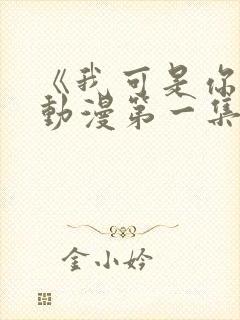 《我可是你
動漫第一集
金小妗